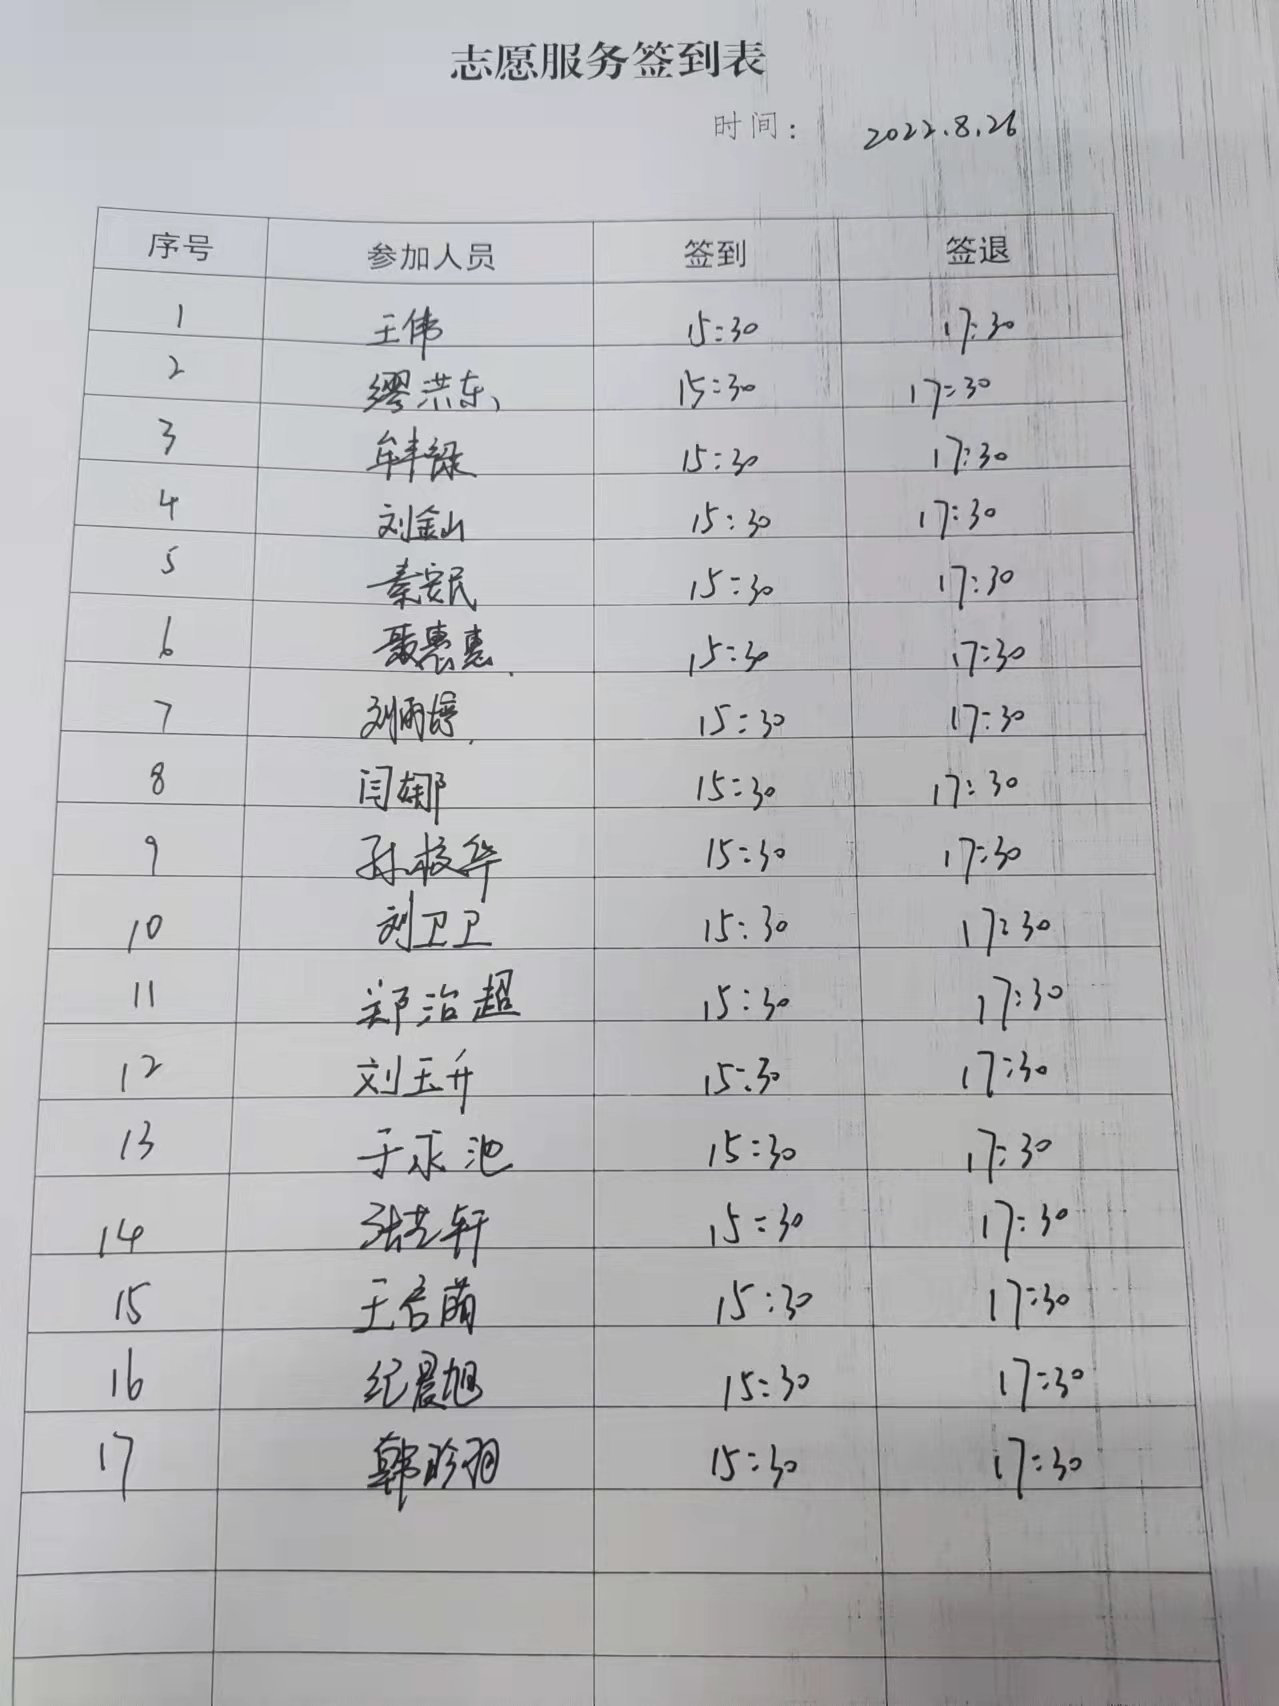 志愿服务签到表
时间: 2022.8.26
序号 参加人员 签到 签退
1 王伟 15:30 17:30
2 缪洪东 15:30 17:30
3 牟丰禄 15:30 17:30
4 刘金山 15:30 17:30
5 秦安民 15:30 17:30
6 聂惠惠 15:30 17:30
7 刘雨婷 15:30 17:30
8 闫娜 15:30 17:30
9 孙校华 15:30 17:30
10 刘卫卫 15:30 17:30
11 郑治超 15:30 17:30
12 刘玉升 15:30 17:30
13 于永池 15:30 17:30
14 张芝轩 15:30 17:30
15 王言萌 15:30 17:30
16 纪晨旭 15:30 17:30
17 韩珍羽 15:30 17:30